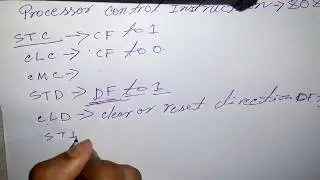 Processor control Instruction → 808
STC → CF to 1
CLC → CF to 0.
CMC →
STD → DF to 1
CLD → clear or reset direction DF:
STI